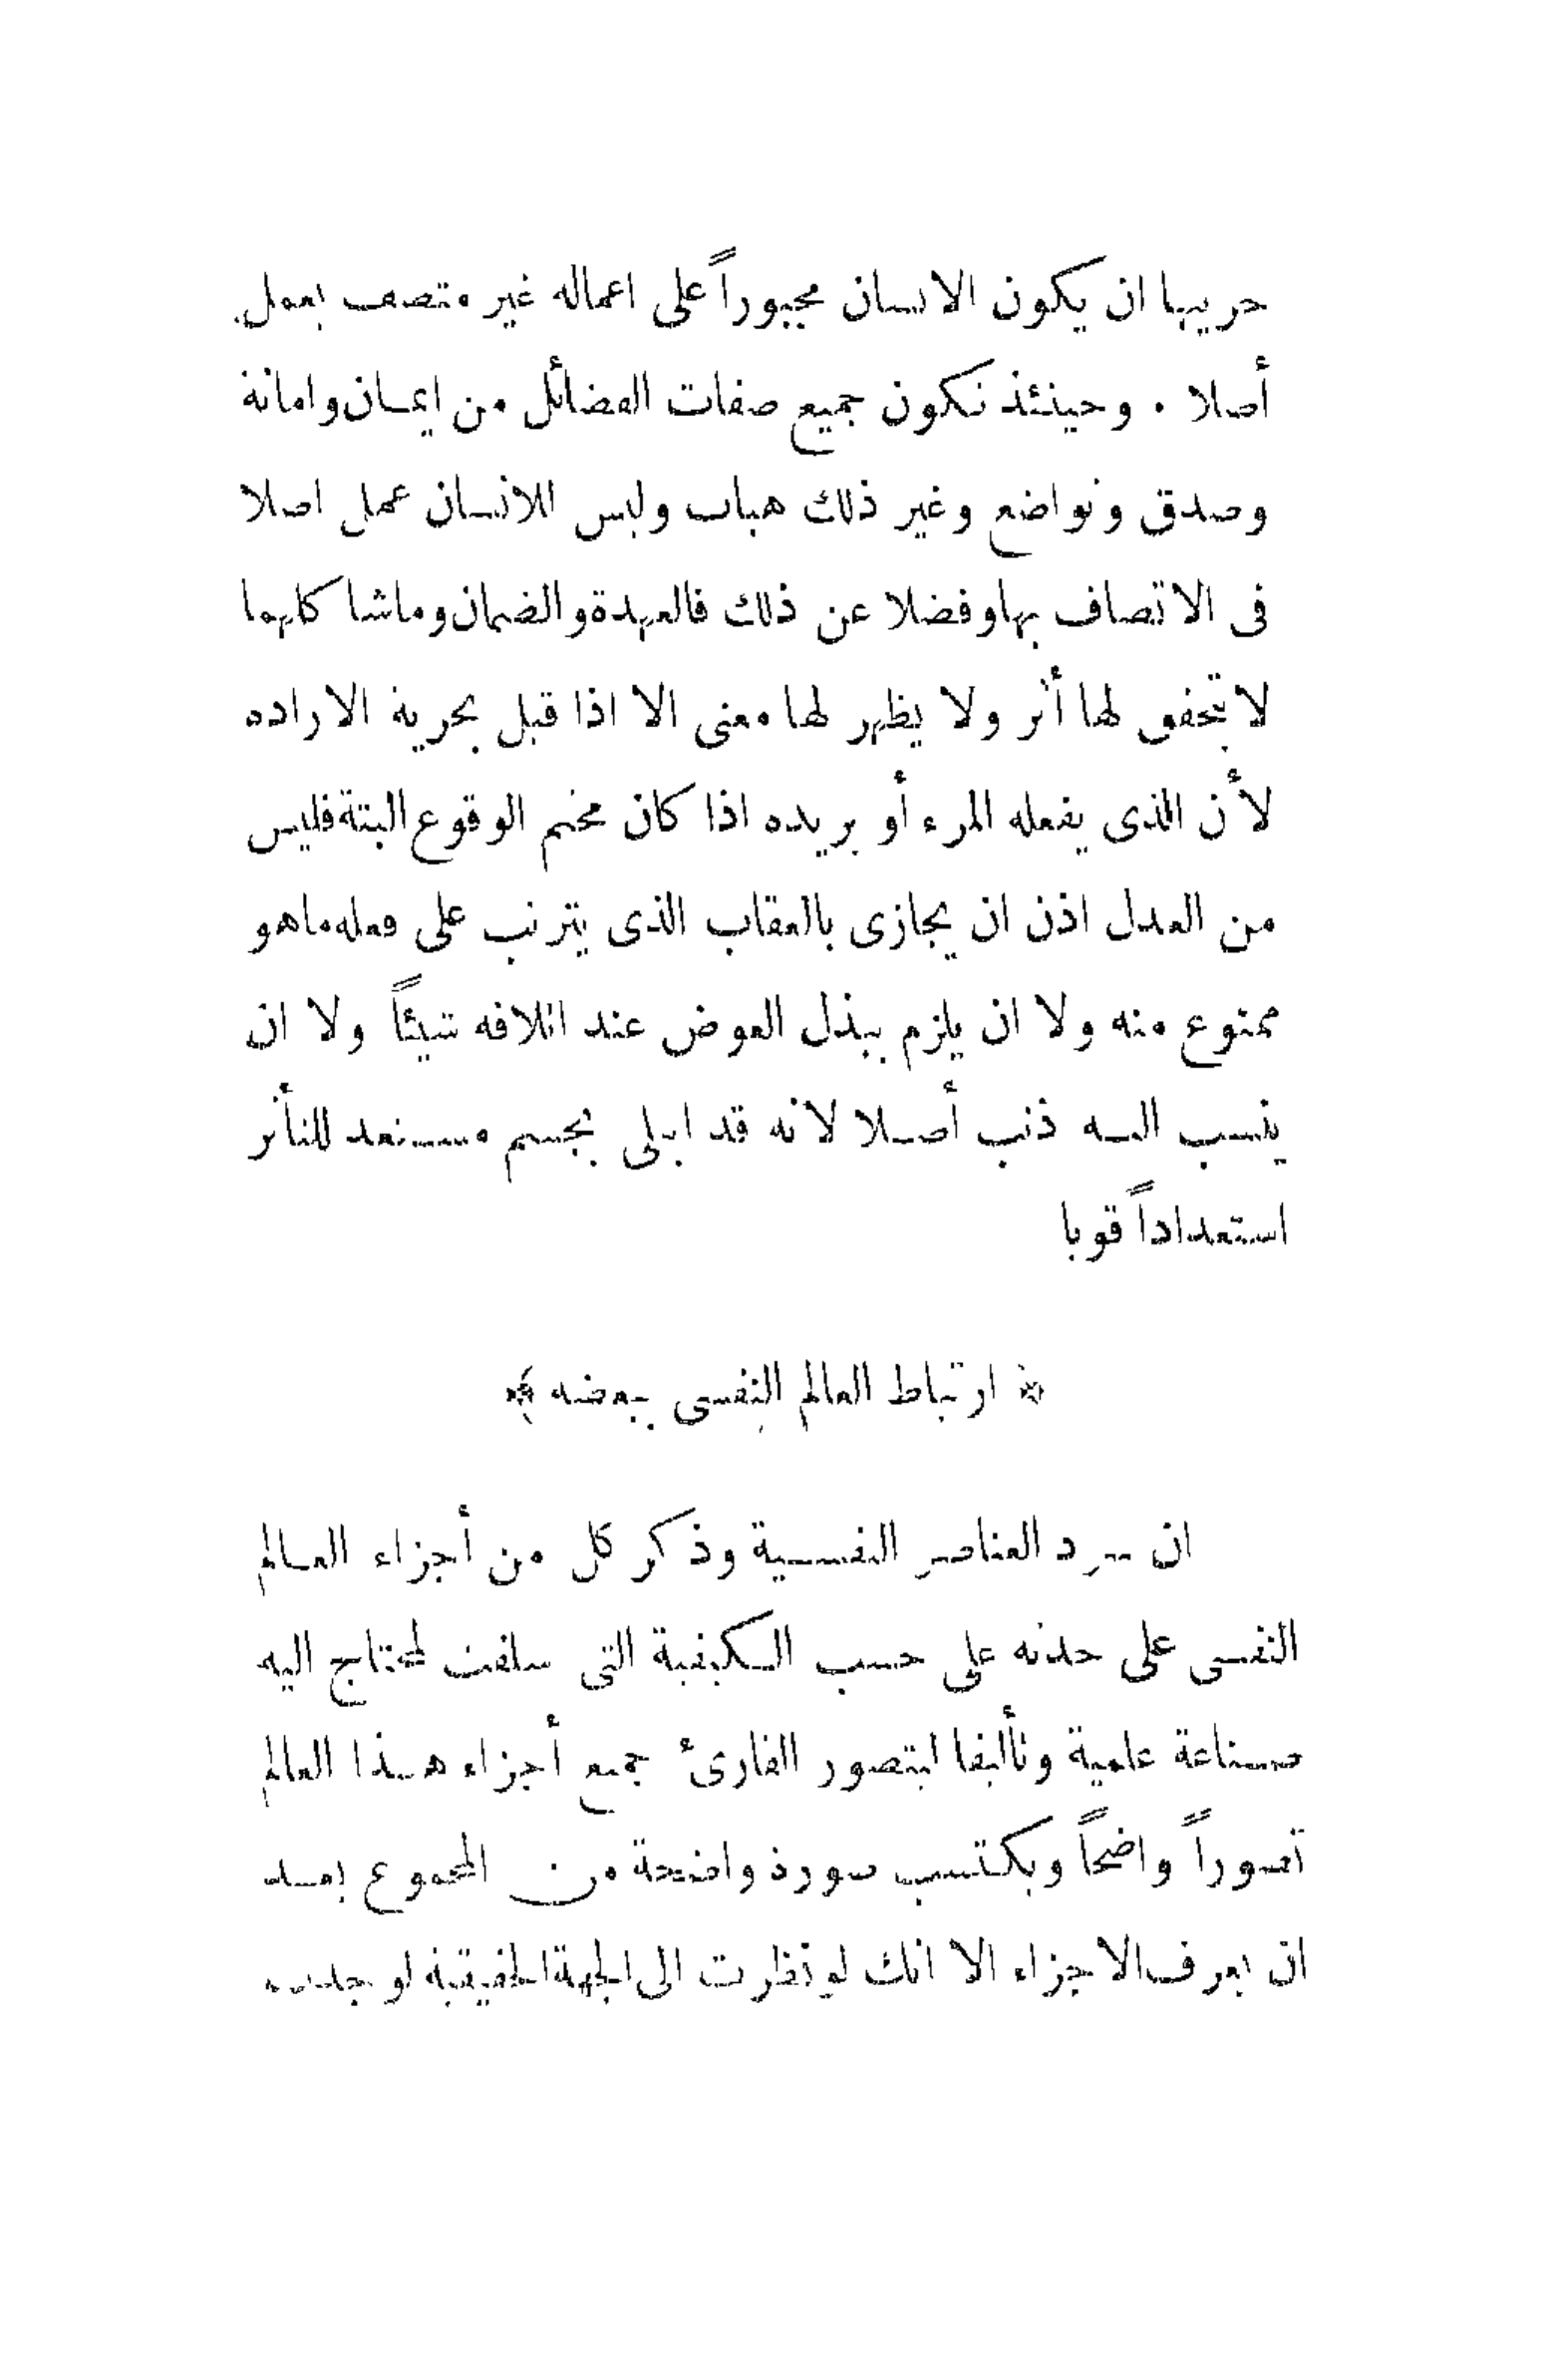 حريتها ان يكون الانسان مجبوراً على اعماله غير متصف بعمل
أصلا . وحينئذ تكون جميع صفات الفضائل من ايمان وامانة
وصدق وتواضع وغير ذلك هبات وليس للانسان عمل اصلا
فى الاتصاف بها وفضلا عن ذلك فالعهدة والضمان وما شاكلهما
لا يتحقق لها أثر ولا يظهر لها معنى الا اذا قيل بحرية الارادة
لأن الذى يفعله المرء أو يريده اذا كان محتم الوقوع البتة فليس
من العدل اذن ان يجازى بالعقاب الذى يترتب على فعله ما هو
ممنوع منه ولا ان يلزم ببذل العوض عند اتلافه شيئاً ولا ان
ينسب اليه ذنب أصلا لانه قد ابتلى بجسم مستعد للتأثر
استعداداً قويا
﴿ ارتباط العالم النفسى ببعضه ﴾
ان سرد العناصر النفسية وذكر كل من أجزاء العالم
النفسى على حدته على حسب الكيفية التى سلفت لمحتاج اليه
صناعة علمية وتأليفا ليتصور القارئ جميع أجزاء هذا العالم
تصوراً واضحاً ويكتسب صورة واضحة من المجموع بعد
ان يعرف الاجزاء الا انك لو نظرت الى الجهة الحقيقية لوجدت